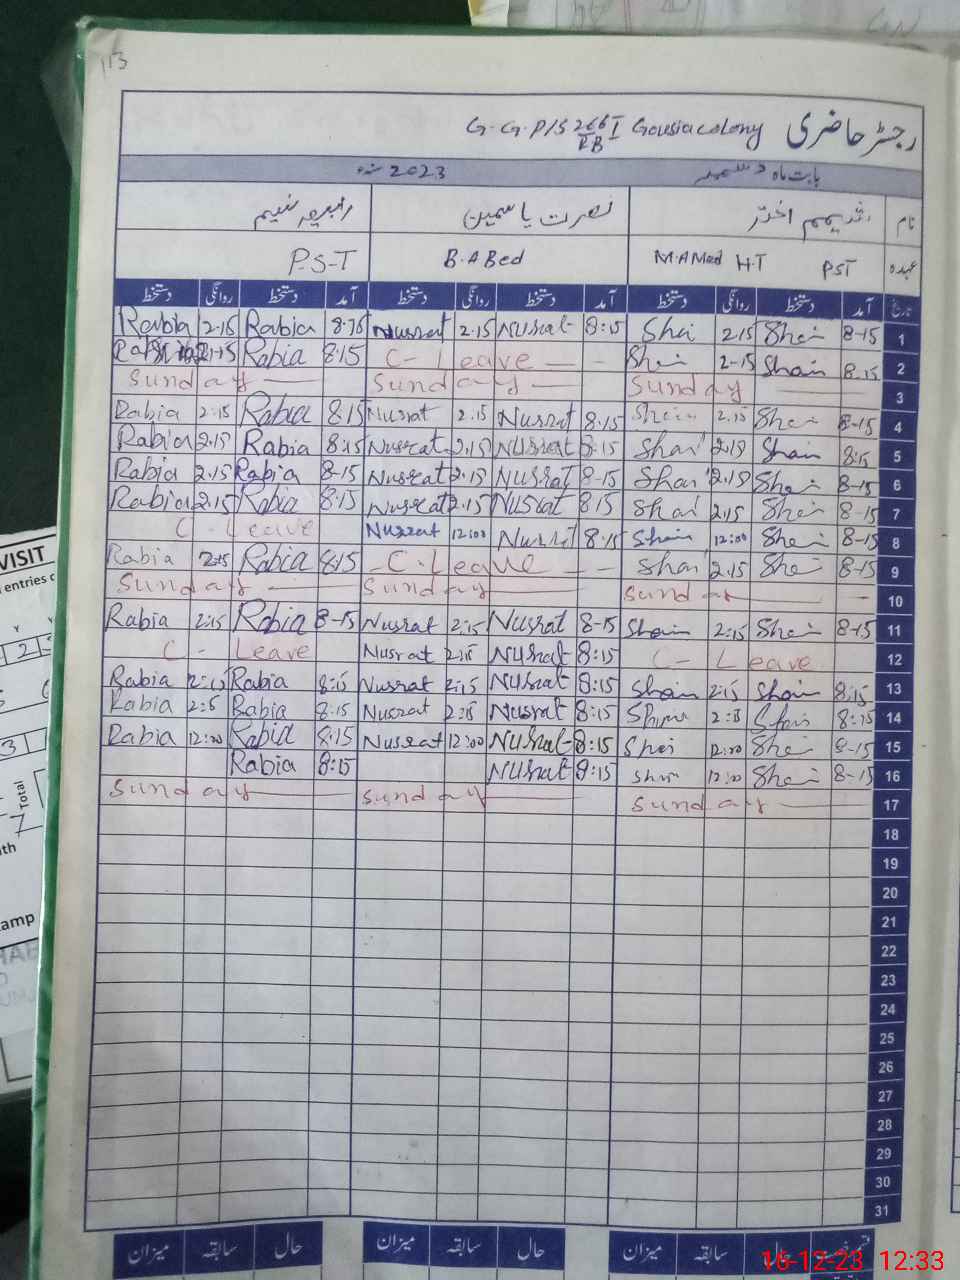 113
رجسٹر حاضری G.G.P/S 266 I RB Gousia colony
بابت ماہ دسمبر 2023 سنہ
نام شمیم اختر نصرت یاسمین رابعہ نسیم
عہدہ PST M.A Med H.T B.A Bed P.S.T
تاریخ آمد دستخط روانگی دستخط آمد دستخط روانگی دستخط آمد دستخط روانگی دستخط
Rabia 2.15 Rabia Nusrat 2.15 Nusrat 8:15 Shai 2.15 Shai 8-15 1
Rabia 8.15 C-Leave Shai 2-15 Shain 8.15 2
Sunday Sunday Sunday 3
Rabia 2.15 Rabia 8.15 Nusrat 2.15 Nusrat 8.15 Shain 2.15 Shai 8-15 4
Rabia 2.15 Rabia 8.15 Nusrat 2.15 Nusrat 8.15 Shai 2.15 Shain 8.15 5
Rabia 2.15 Rabia 8-15 Nusrat 2.15 Nusrat 8-15 Shai 2.15 Shai 8-15 6
Rabia 2.15 Rabia 8.15 Nusrat 2.15 Nusrat 8.15 Shai 2.15 Shai 8-15 7
C-Leave Nusrat 12:00 Nusrat 8.15 Shain 12:00 Shai 8-15 8
Rabia 2.15 Rabia 8.15 C.Leave Shai 2.15 Shai 8-15 9
Sunday Sunday Sunday 10
Rabia 2:15 Rabia 8-15 Nusrat 2:15 Nusrat 8-15 Shain 2:15 Shai 8-15 11
C-Leave Nusrat 2:15 Nusrat 8:15 C-Leave 12
Rabia 2:15 Rabia 8:15 Nusrat 2:15 Nusrat 8:15 Shain 2:15 Shain 8:15 13
Rabia Rabia 8.15 Nusrat 2:15 Nusrat 8:15 Shain 8:15 14
Rabia 12:00 Rabia 8.15 Nusrat 12:00 Nusrat 8:15 Shai 12:00 Shai 8-15 15
Rabia 8:15 Nusrat 8:15 12:00 Shai 8-15 16
Sunday Sunday Sunday 17
18
19
20
21
22
23
24
25
26
27
28
29
30
31
حال سابقہ میزان حال سابقہ میزان حال سابقہ میزان
16-12-23 12:33
VISIT
entries
Total
amp